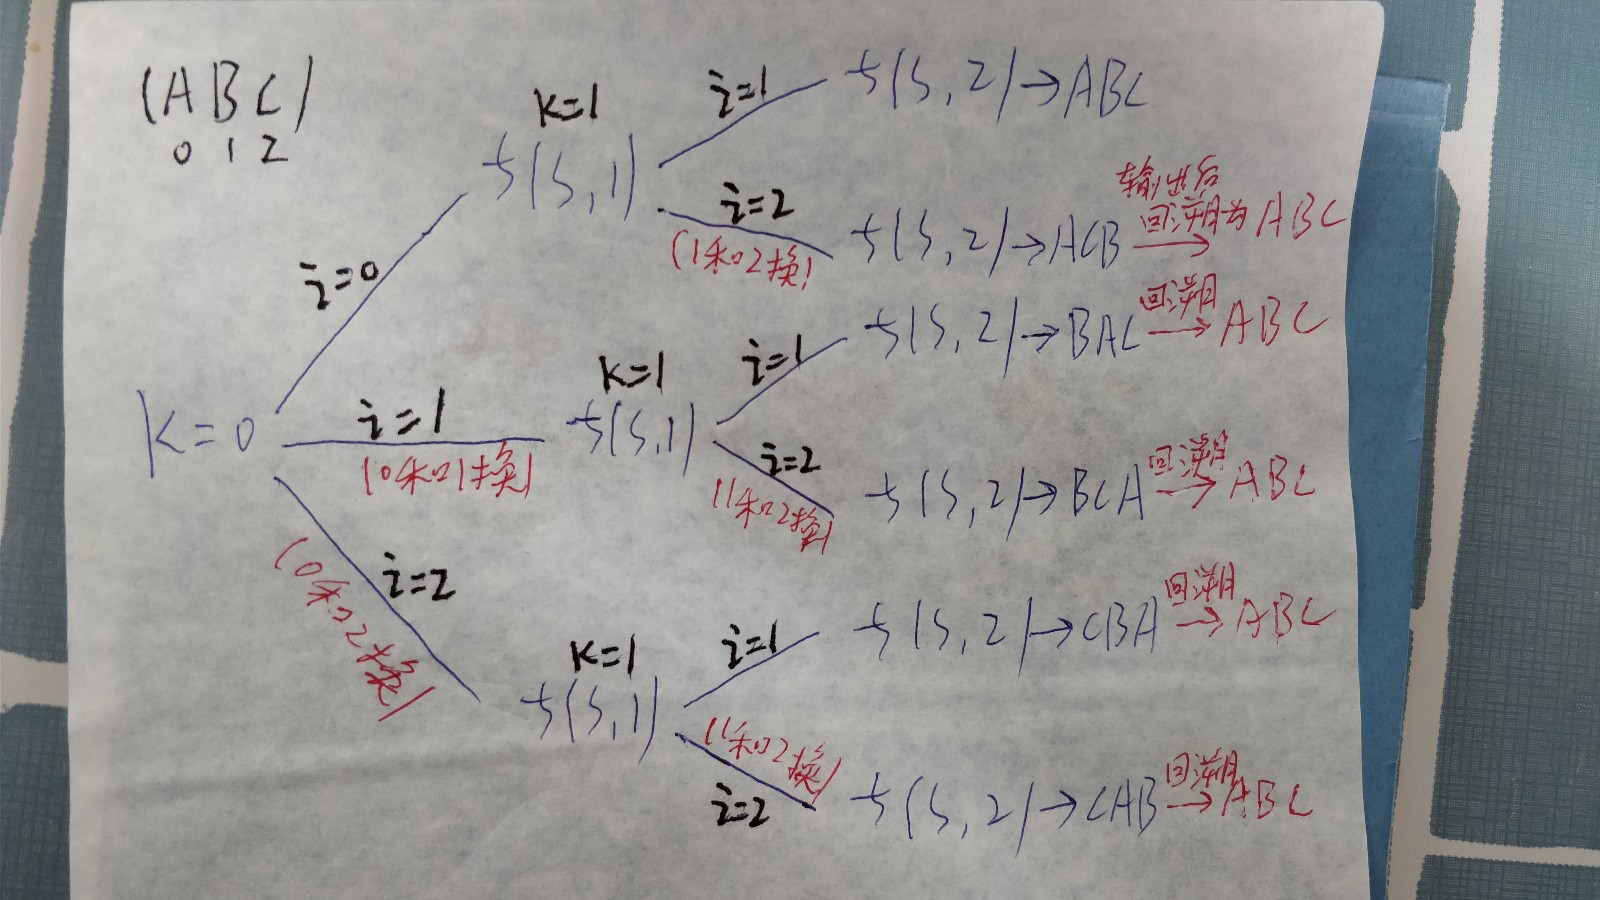 (ABC)
0 1 2
K=1
i=1
f(S,2)→ABC
f(S,1)
i=2
(1和2换)
f(S,2)→ACB
输出后
回溯为ABC
i=0
i=1
f(S,2)→BAC
回溯
→ABC
K=0
i=1
(0和1换)
K=1
f(S,1)
i=2
(1和2换)
f(S,2)→BCA
回溯
→ABC
i=2
(0和2换)
K=1
i=1
f(S,2)→CBA
回溯
→ABC
f(S,1)
(1和2换)
i=2
f(S,2)→CAB
回溯
→ABC